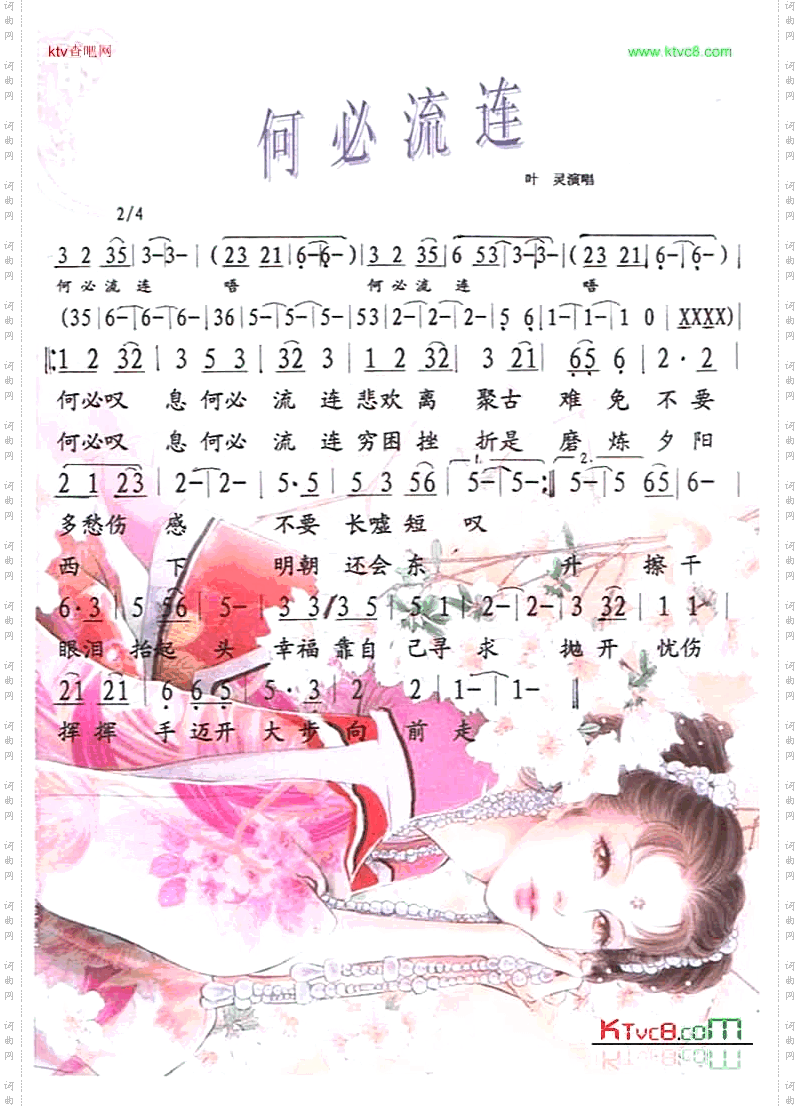 ktv查吧网 www.ktvc8.com
何必流连
叶 灵演唱
2/4
3 2 35|3-3-|(23 21|6-6-)|3 2 35|6 53|3-3-|(23 21|6-6-)|
何必流连 唔 何必流连 唔
(35|6-|6-|6-|36|5-|5-|5-|53|2-|2-|2-|5 6|1-|1-|1 0|XXXX)|
‖:1 2 32|3 5 3|32 3|1 2 32|3 21|65 6|2·2|
何必叹 息何必 流 连悲欢离 聚古 难 免 不 要
何必叹 息何必 流 连穷困挫 折是 磨 炼 夕 阳
2 1 23|2-|2-|5·5|5 3 56|1.5-|5-:‖2.5-|5 65|6-|
多愁伤 感 不要 长嘘短 叹
西 下 明朝 还会东 升 擦干
6·3|5 56|5-|3 3/3 5|5 1|2-|2-|3 32|1 1-|
眼泪 抬起 头 幸福 靠自 己寻 求 抛开 忧伤
21 21|6 6 5|5·3|2 2|1-|1-‖
挥 挥 手 迈开 大 步 向 前 走
KTvc8.com
词曲网